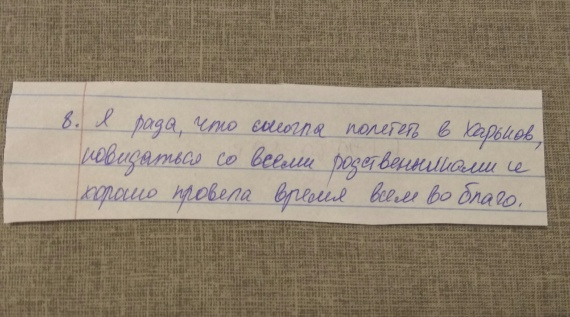 8. Я рада, что смогла полететь в Харьков,
повидаться со всеми родственниками и
хорошо провела время всем во благо.